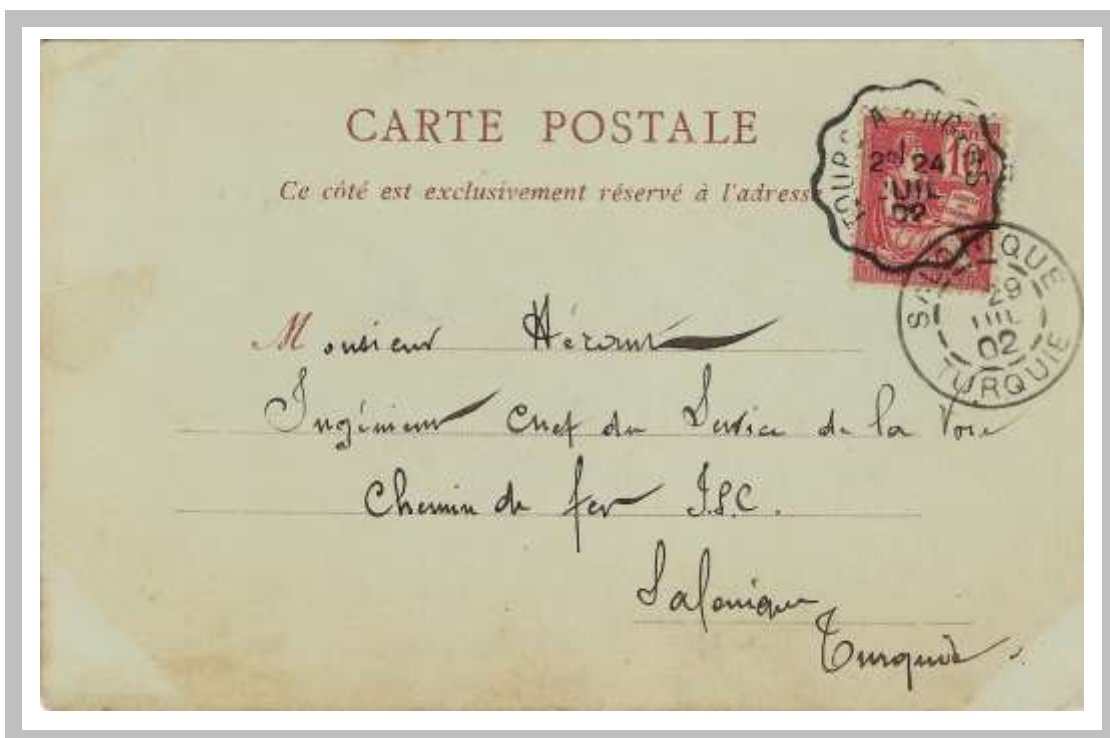 CARTE POSTALE
Ce côté est exclusivement réservé à l'adresse
TOURS A
10
2º 24
JUIL
02
SALONIQUE
29
JUIL
02
TURQUIE
Monsieur
Ingénieur Chef du Service de la Voie
Chemin de fer J.S.C.
Salonique
Turquie.